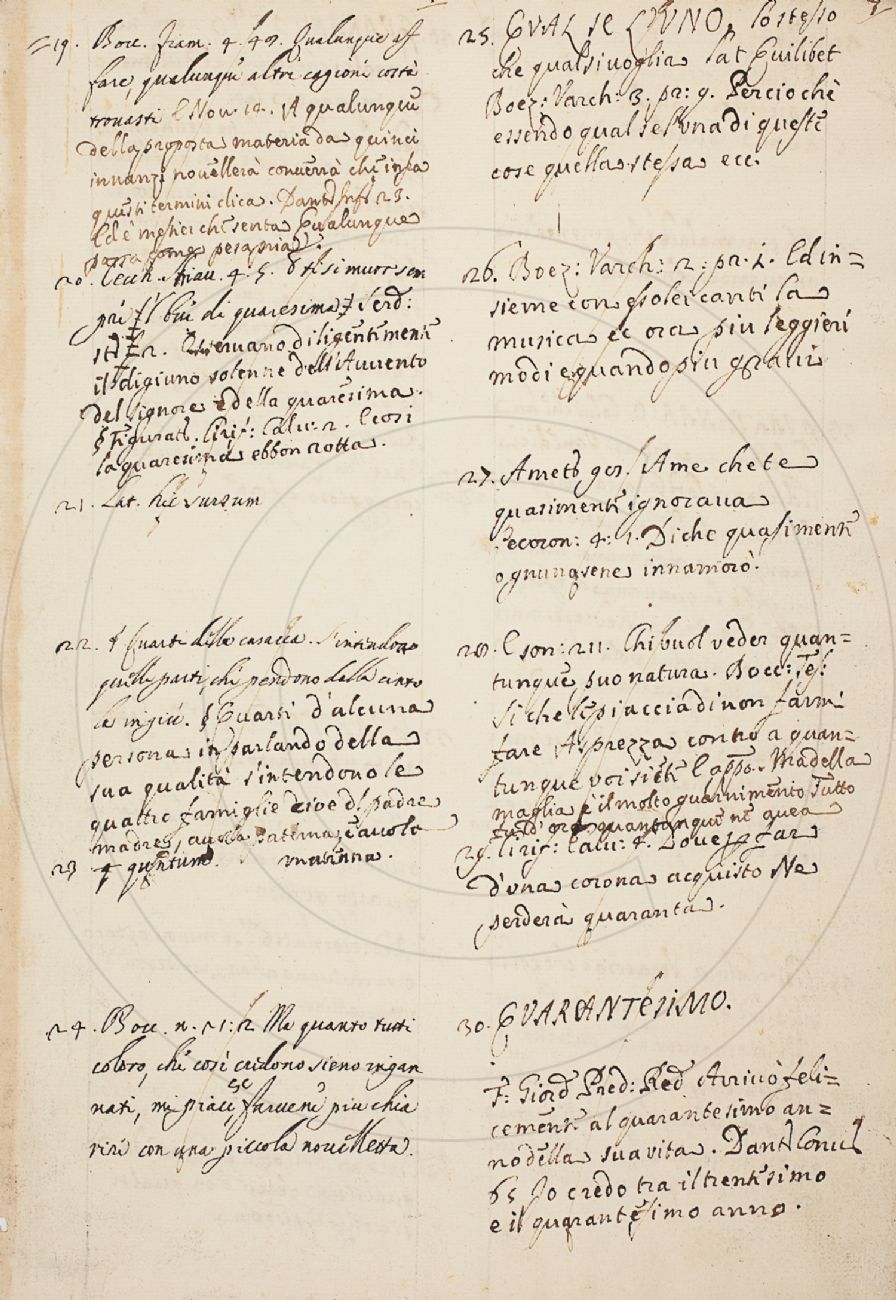 19. Bocc. fiam. 4. 49. Qualunque af
fare, qualunque altre cagioni costà
trovasti E Nov. 14. A qualunque
della proposta materia da quinci
innanzi novellerà converrà che infra
questi termini dica. Dant. Inf. 23.
Ed è mestier che senta Qualunque
passa come pesa pria.
20. Cecch. Stiav. 4. 5. si muor sem
pre il bue di quaresima Serd:
st. 2. Osservano diligentemente
il digiuno solenne dell'Avvento
del Signore e della quaresima.
§ Figurat. Cirif: Calv: 2. E così
la quaresima ebbon rotta.
21. Lat. hic sursum
22. § Quarti della casacca. S'intendono
quelle parti, che pendono dalla cinto
la ingiù. § Quarti d'alcuna
persona in parlando della
sua qualità s'intendono le
quattro famiglie cioè dl padre
madre, avola paterna, e avola
materna.
23 quantum.
24. Bocc. n. 21: 2 Ma quanto tutti
coloro, che così credono sieno ingan
nati, mi piace, farvene piu chia
rire con una piccola novelletta.
25. QUAL SE L'UNO, lo stesso
che qualsivoglia Lat Quilibet
Boez: Varch: 3. pr: 9. Perciochè
essendo qual sel'una di queste
cose quella stessa ecc.
26. Boez: Varch: 2: pr. 1. Ed in=
sieme con esolei canti la
musica ec ora piu leggieri
modi e quando piu gravi
27. Amet. 90. A me che te
quasimente ignorava
Decoron: 4: 1. Di che quasimente
ognunq sene innamorò.
28. E son: 211. Chi vuol veder quan=
tunque puo natura. Bocc: Tes:
Si che te piaccia di non farmi
fare Asprezza contro a quan=
tunque voi siete E appo. Ma della
maglia è il molto guarnimento Tutto
fu d'oro quantunque ne avea
29. Cirif: Calv: 4. Dove
d'una corona acquisto Ne
perderà quaranta.
30. QUARANTESIMO.
F: Giord Pred: Red Arrivò feli=
cemente al quarantesimo an=
no della sua vita. Dant Conv
65 Io credo tra il trentesimo
e il quarantesimo anno.